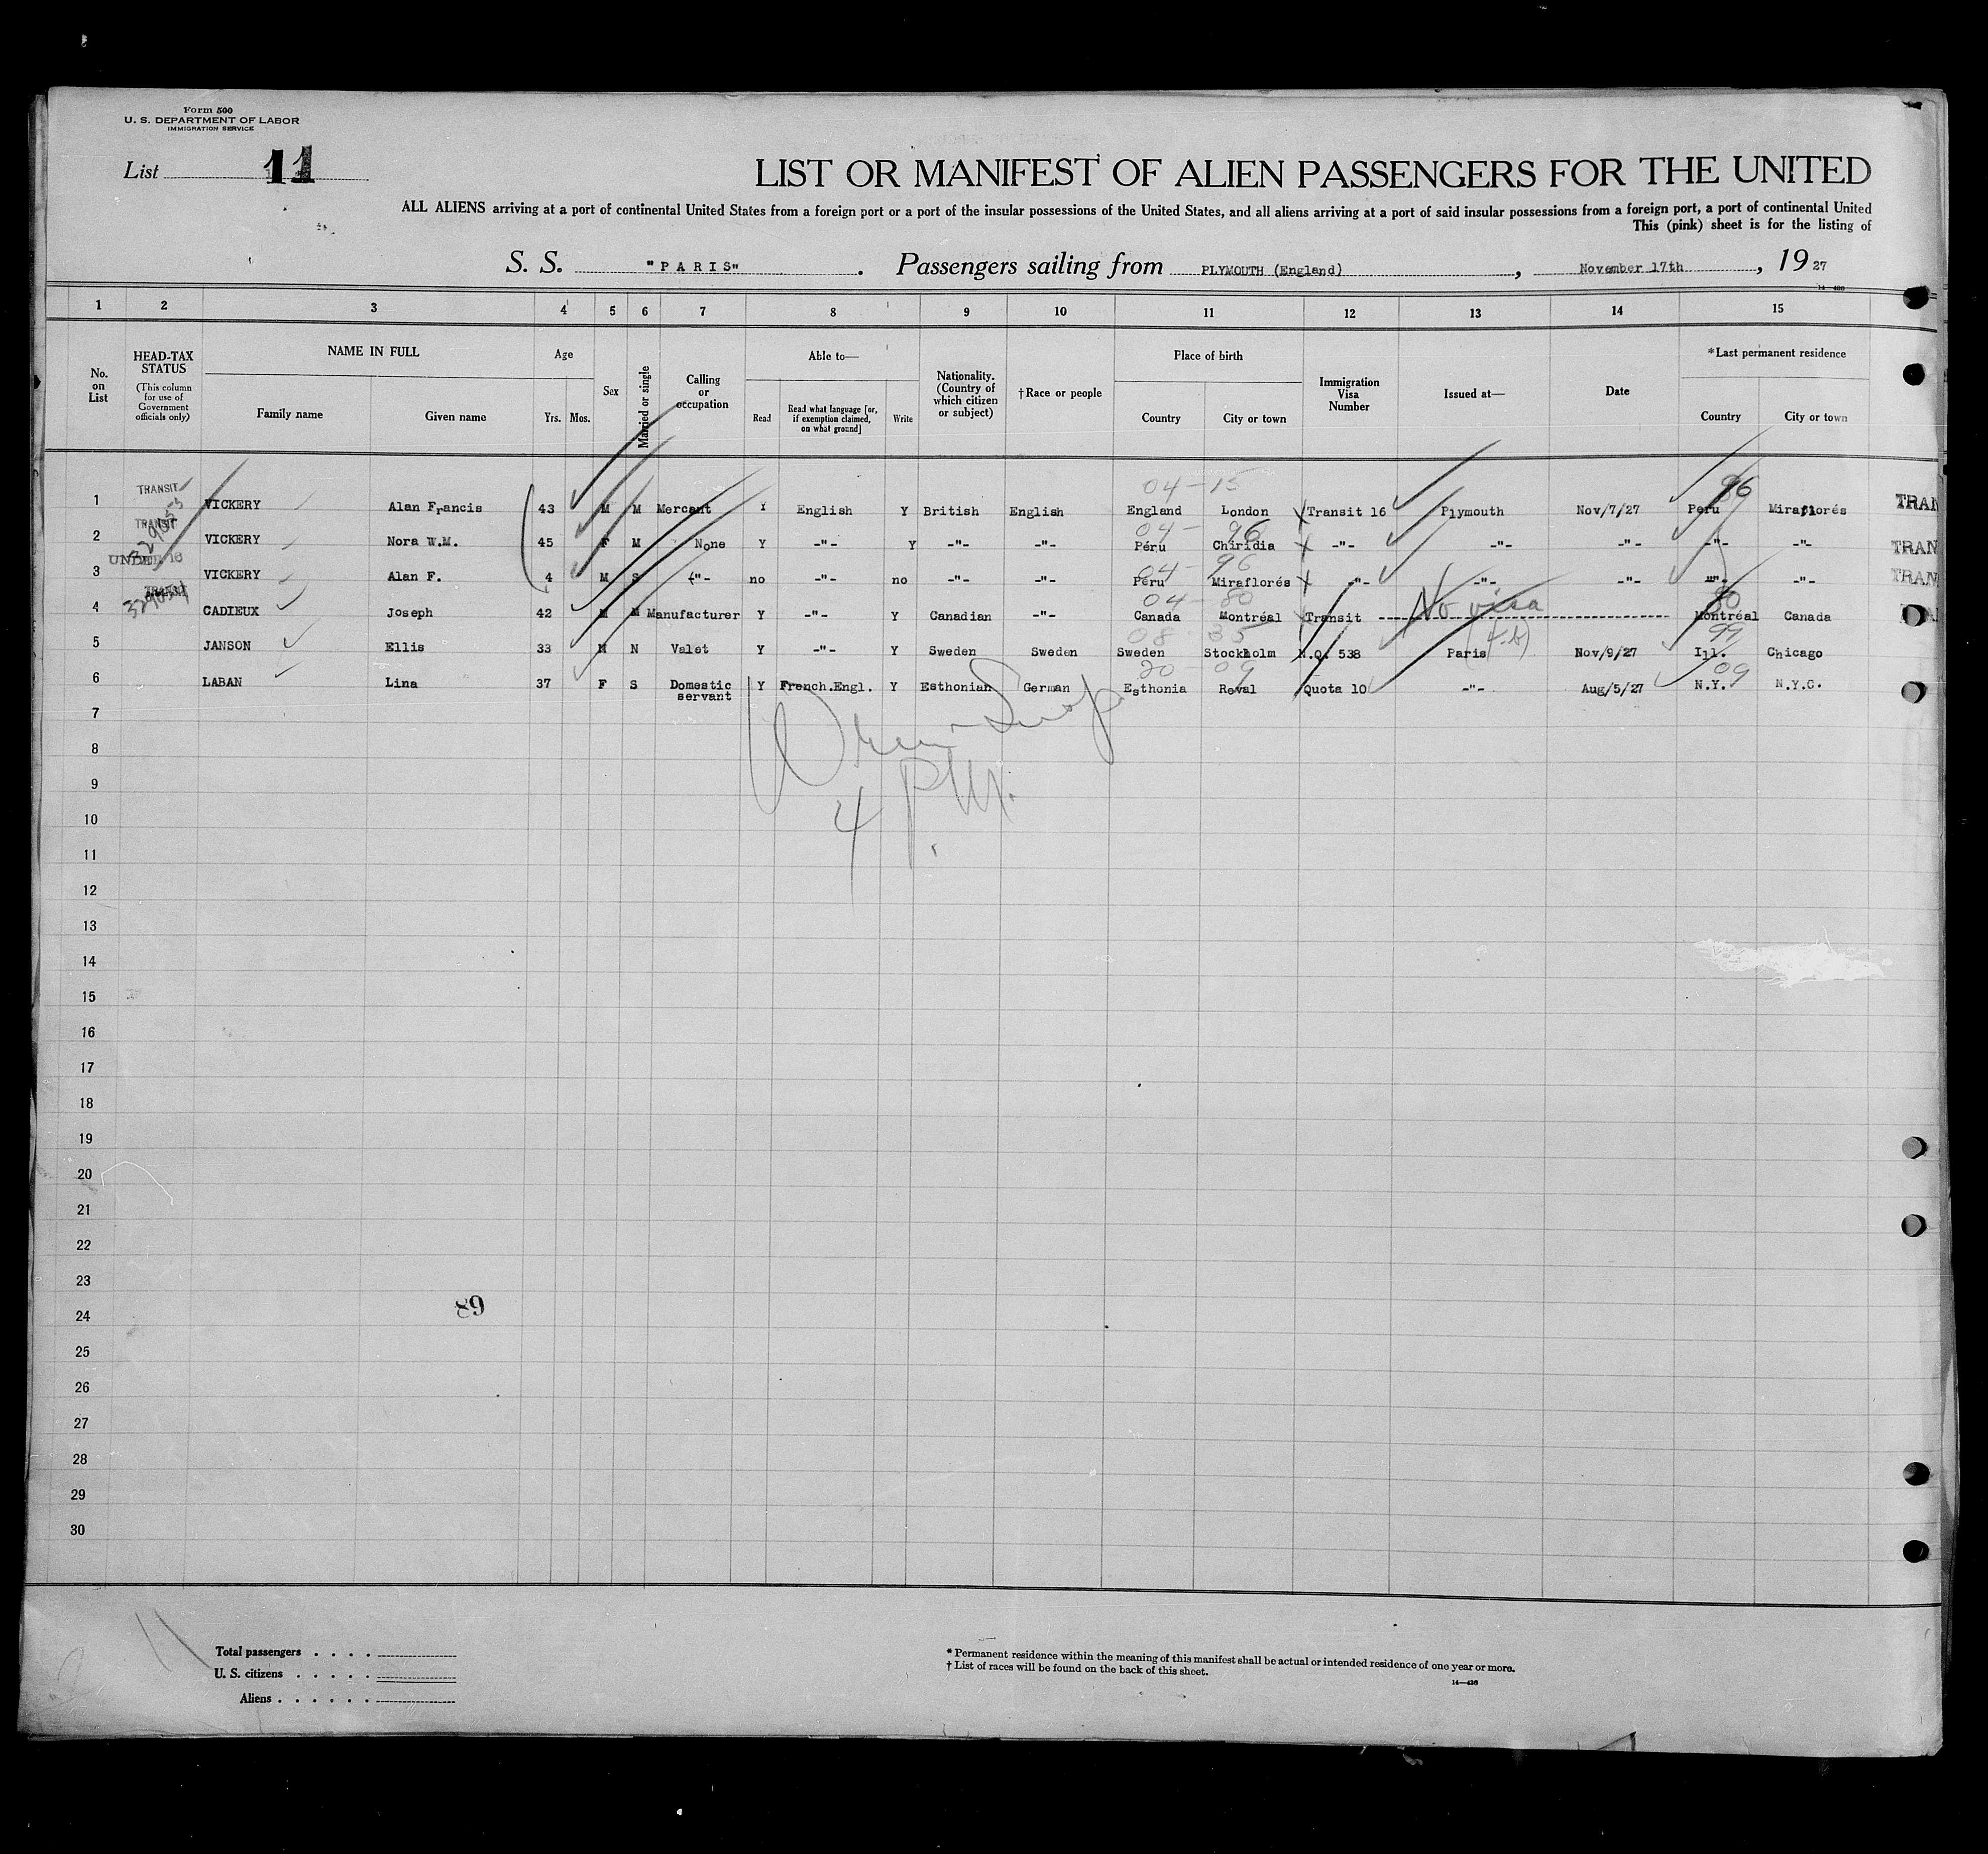 Form 500
U. S. DEPARTMENT OF LABOR
IMMIGRATION SERVICE
List 11
LIST OR MANIFEST OF ALIEN PASSENGERS FOR THE UNITED
ALL ALIENS arriving at a port of continental United States from a foreign port or a port of the insular possessions of the United States, and all aliens arriving at a port of said insular possessions from a foreign port, a port of continental United
This (pink) sheet is for the listing of
S. S. "PARIS". Passengers sailing from PLYMOUTH (England), November 17th, 1927
1 2 3 4 5 6 7 8 9 10 11 12 13 14 15
No. on List
HEAD-TAX STATUS (This column for use of Government officials only)
NAME IN FULL
Family name Given name
Age
Yrs. Mos.
Sex
Married or single
Calling or occupation
Able to—
Read
Read what language [or, if exemption claimed, on what ground]
Write
Nationality. (Country of which citizen or subject)
†Race or people
Place of birth
Country City or town
Immigration Visa Number
Issued at—
Date
*Last permanent residence
Country City or town
04-15 96
1 TRANSIT VICKERY Alan Francis 43 M M Mercant Y English Y British English England London Transit 16 Plymouth Nov/7/27 Peru Miraflorés TRAN
04-96
2 TRANSIT VICKERY Nora W.M. 45 F M None Y -"- Y -"- -"- Péru Chiridia -"- -"- -"- -"- -"- TRAN
04-96
3 UNDER 16 VICKERY Alan F. 4 M S -"- no -"- no -"- -"- Péru Miraflorés -"- -"- -"- -"- -"- TRAN
04-80 80
4 TRANSIT CADIEUX Joseph 42 M M Manufacturer Y -"- Y Canadian -"- Canada Montréal Transit No visa Montréal Canada
08 35 99
5 JANSON Ellis 33 M N Valet Y -"- Y Sweden Sweden Sweden Stockholm N.Q. 538 Paris Nov/9/27 Ill. Chicago
20-09 09
6 LABAN Lina 37 F S Domestic servant Y French.Engl. Y Esthonian German Esthonia Reval Quota 10 -"- Aug/5/27 N.Y. N.Y.C.
7
8
4 P.M.
9
10
11
12
13
14
15
16
17
18
19
20
21
22
23
89
24
25
26
27
28
29
30
Total passengers
U. S. citizens
Aliens
* Permanent residence within the meaning of this manifest shall be actual or intended residence of one year or more.
† List of races will be found on the back of this sheet.